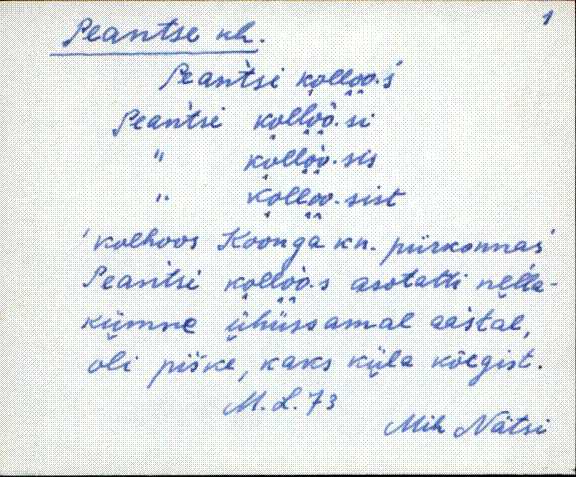 1
Peantse kh.
Peàntsi kolloo.s
Peàntsi kolloò.si
" kolloò.sis
" kolloo.sist
'kolhoos Koonga kn. piirkonnas'
Peàntsi kolloò.s asotatti nella-
kümne ühüssamal aastal,
oli piške, kaks küla kõegist.
M. L. 73
Mih Nätsi